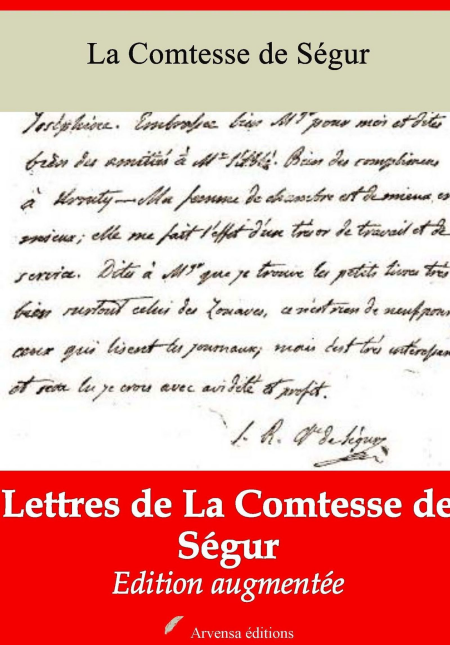 La Comtesse de Ségur
Joséphine. Embrassez bien Mgr pour moi et dites
bien des amitiés à Mr l'Abbé. Bien des complimens
à – Ma femme de chambre est de mieux en
mieux; elle me fait l'effet d'un trésor de travail et de
service. Dites à Mgr que je trouve les petits livres très
bien surtout celui des Zouaves, ce n'est rien de neuf pour
ceux qui lisent les journaux; mais c'est très intéressan
et sera lu je crois avec avidité et profit.
J. R. Ctesse de Ségur
Lettres de La Comtesse de
Ségur
Edition augmentée
Arvensa éditions